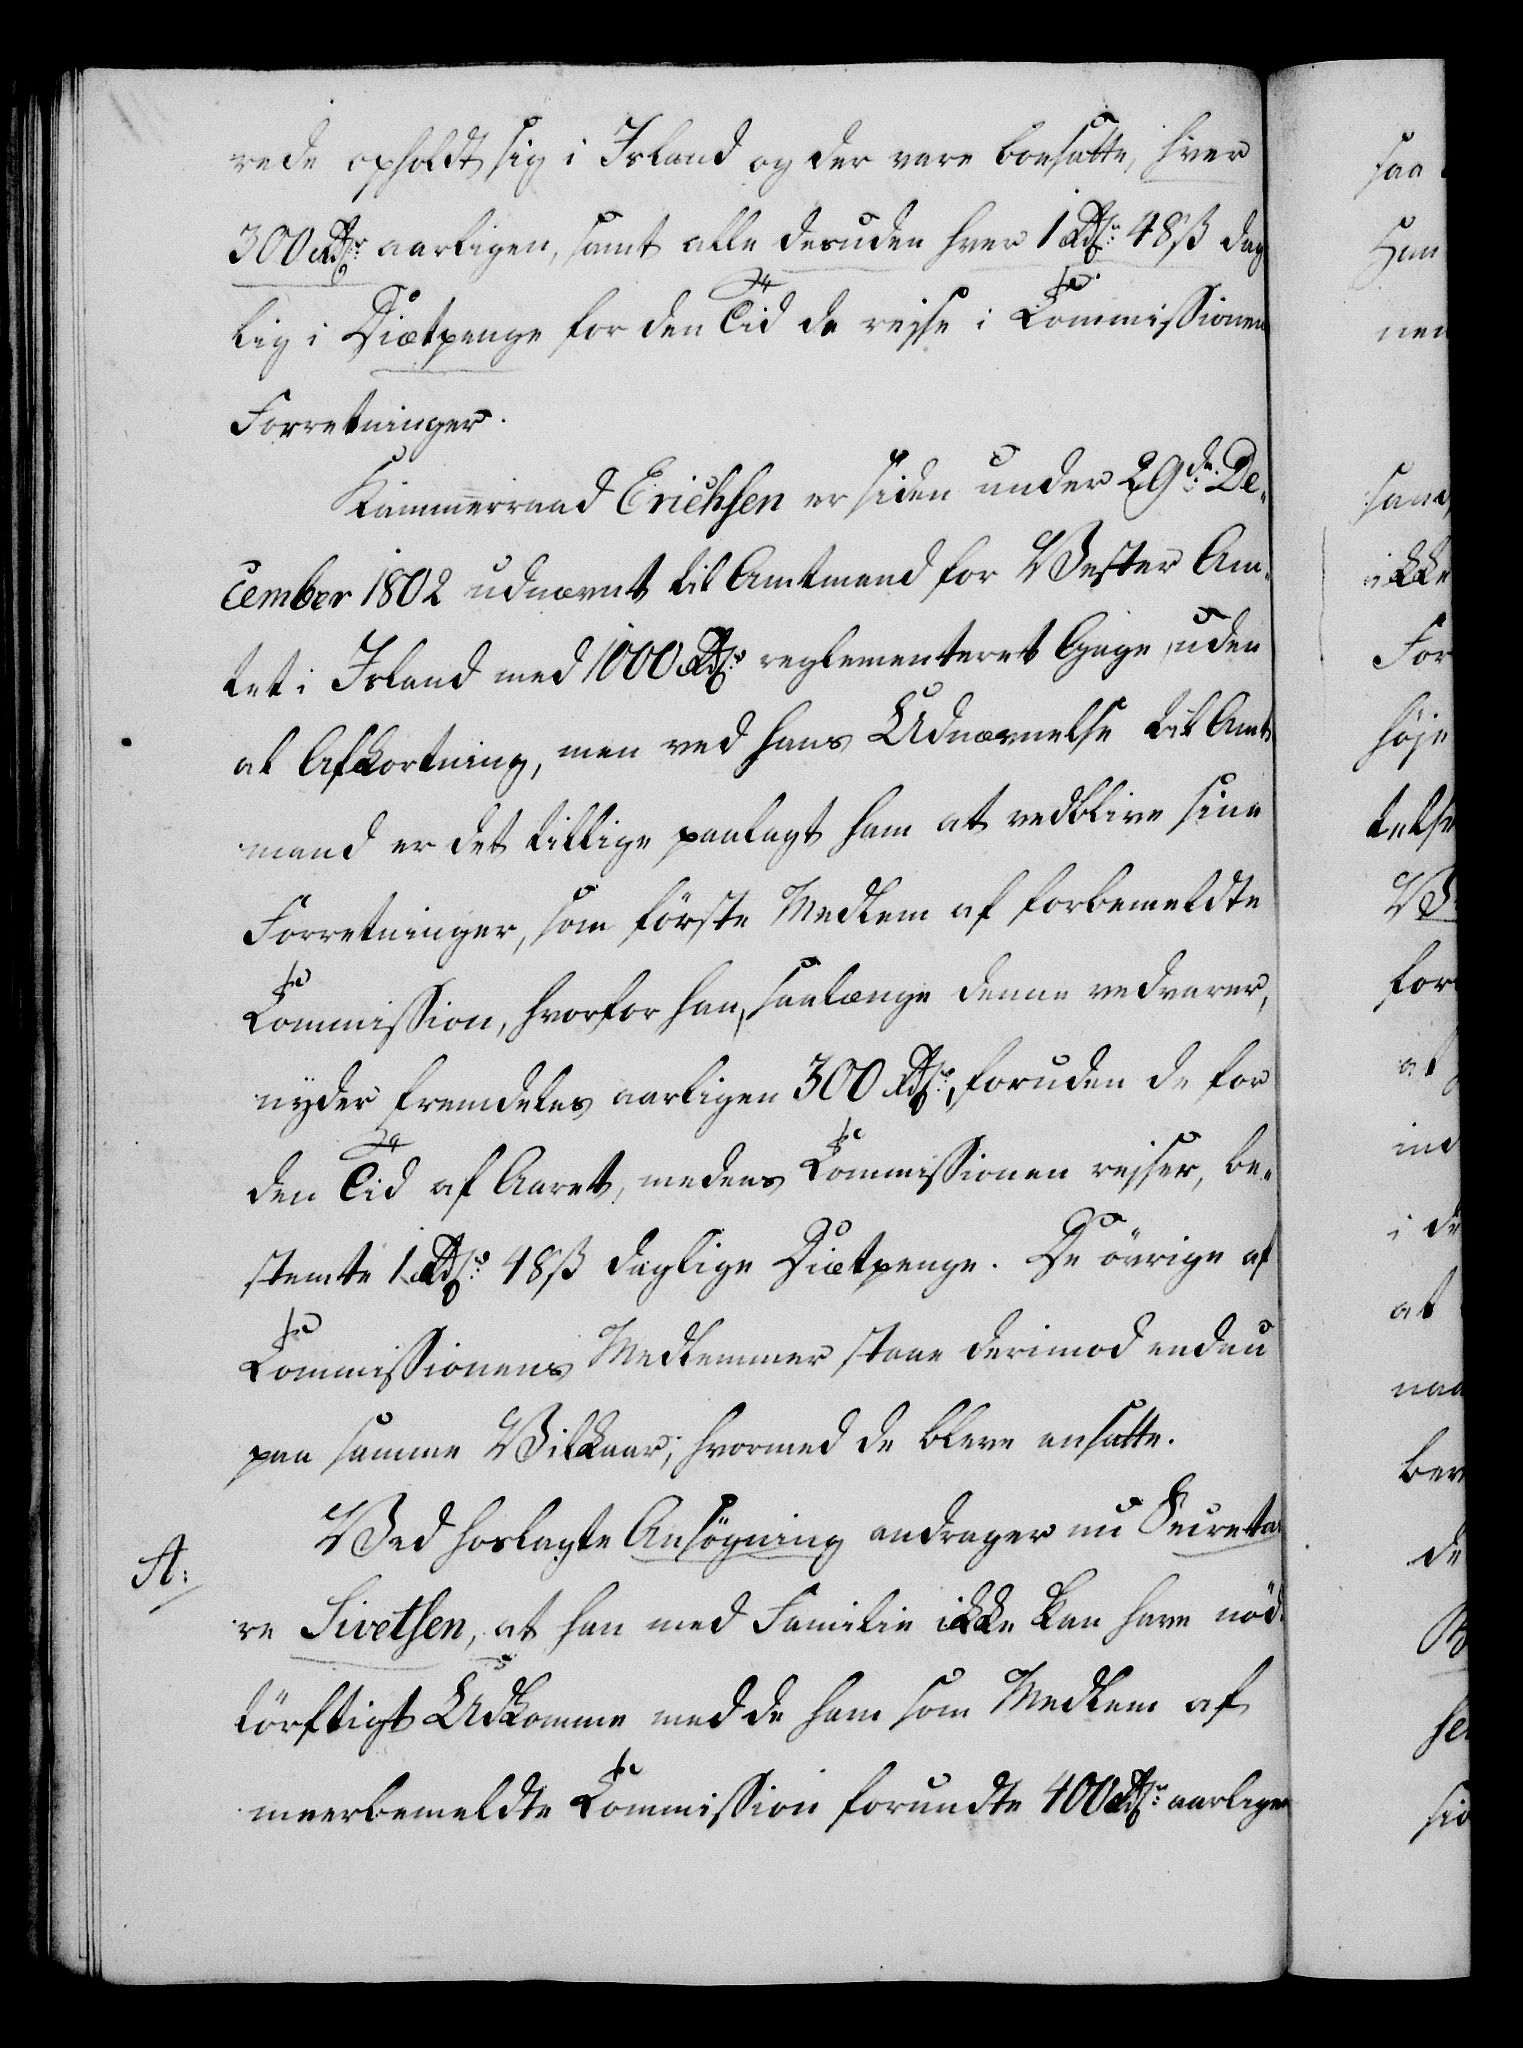 rede opholdt sig i Island og der vare boesatte, hver
300 Rdlr aarligen, samt alle desuden hver 1 Rdlr 48 ß dag
lig i Diætpenge for den Tid de rejse i Commissionen
Forretninger.
Kammerraad Erichsen er siden under 29de De„
cember 1802 udnævnt til Amtmand for Vester Am„
tet i Island med 1000 Rdlr reglementeret Gage, uden
al Afkortning, men ved hans Udnævnelse til Amt
mand er det tillige paalagt ham at vedblive sine
Forretninger, som förste Medlem af forbemeldte
Commission, hvorfor han, saalænge denne vedvarer,
nyder fremdeles aarligen 300 Rdlr, foruden de for
den Tid af Aaret, medens Commissionen rejser, be„
stemte 1 Rdlr 48 ß daglige Diætpenge. De övrige af
Commissionens Medlemmer staae derimod endnu
paa samme Vilkaar, hvormed de bleve ansatte.
A: Ved hoslagte Ansögning andrager nu Secretai
re Sivetsen, at han med Familie ikke kan have nöd„
törftigt Udkomme med de ham som Medlem af
meerbemeldte Commission forundte 400 Rdlr aarligen
saa
Han
nen
sam
ikke
For
höje
telse
for
at
ind
i de
at
naa
ber
de
sio